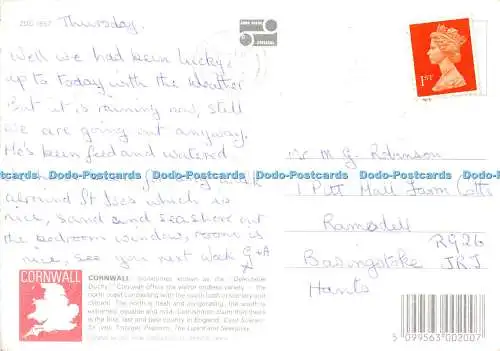 ZDC 1957 Thursday.
Well we had been lucky
up to today with the weather
But it is raining now, still
we are going out anyway.
He's been feed and watered
around St Ives which is
nice, sand and seashore out
the bedroom window, room is
nice, see you next week G+A
X
1ST
Mr M G. Robinson
1 Pitt Hall Farm Cotts
Ramsdell
RG26
Basingstoke
Hants
Dodo-Postcards Dodo-Postcards Dodo-Postcards Dodo-Postcards Dodo-Postcards
CORNWALL
CORNWALL Sometimes known as the "Delectable
Duchy," Cornwall offers the visitor endless variety - the
climate. The north is fresh and invigorating, the south is
extremely equable and mild. Cornishmen claim that theirs
is the first, last and best county in England.
St. Ives,
5 099563 002007